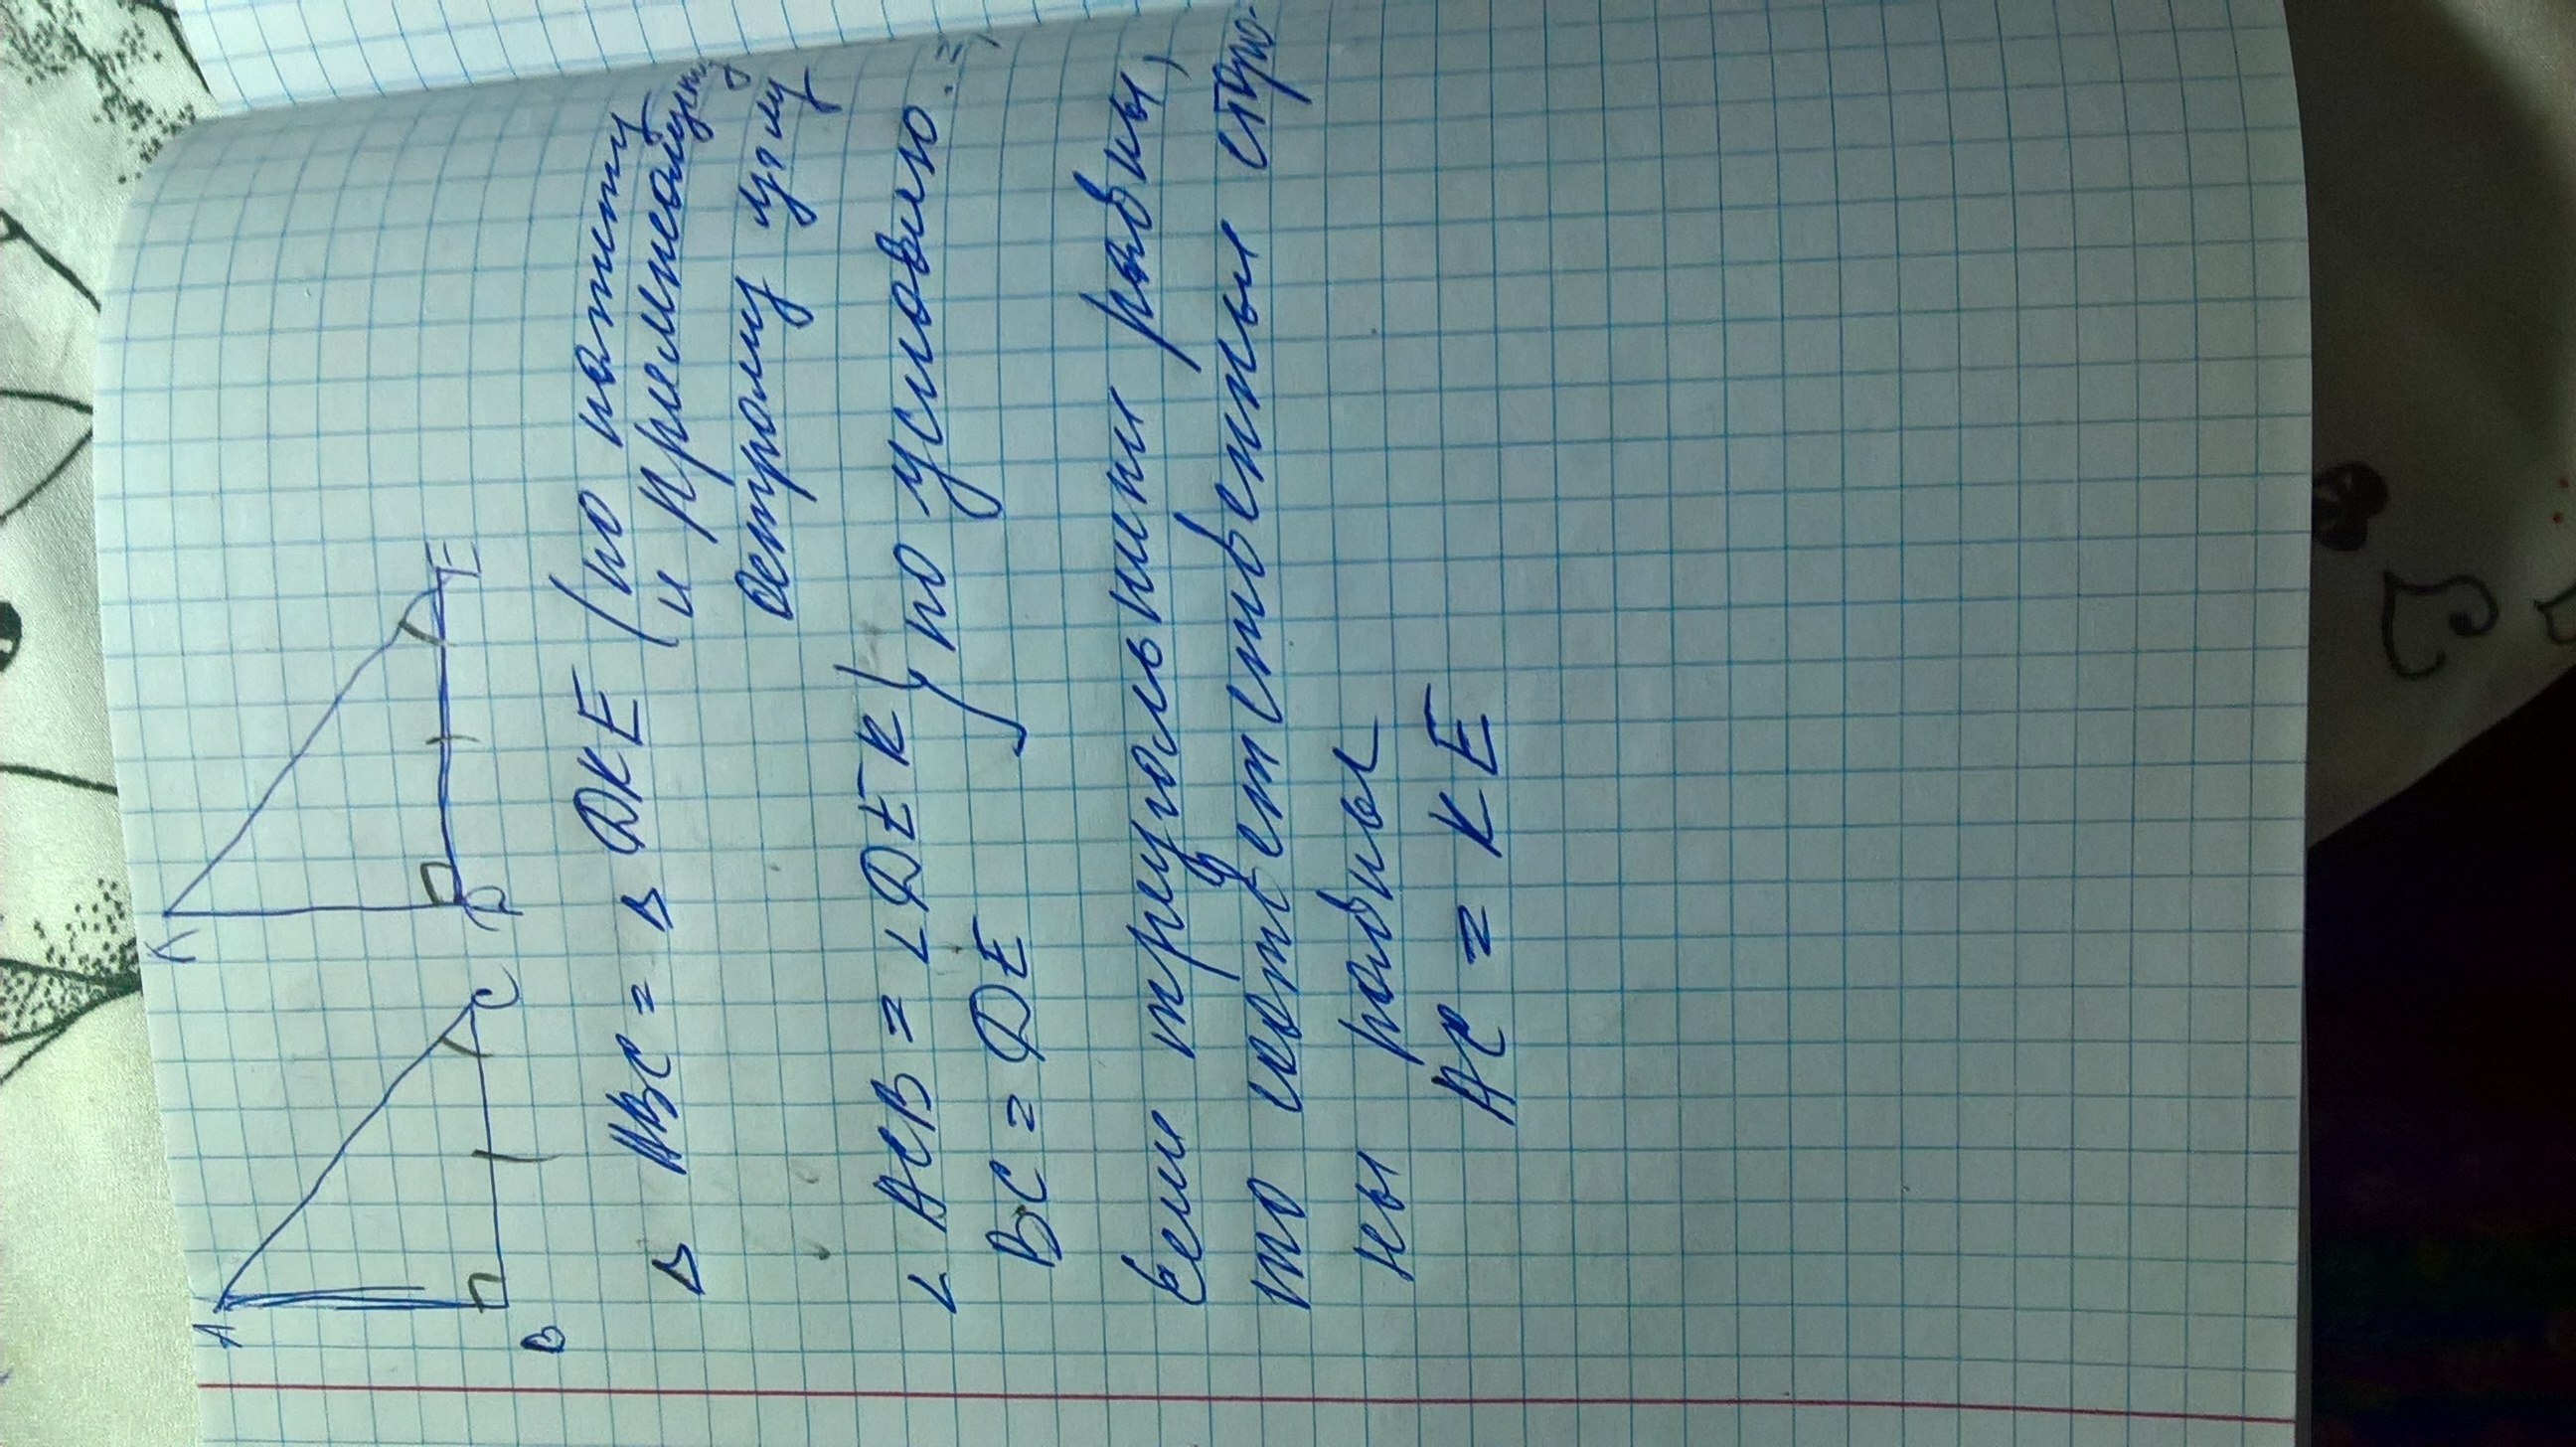 A
K
B
C
D
E
Δ ABC = Δ DKE (по катету
и прилежащ.
острому углу
∠ ACB = ∠ DEK } по условию. =>
BC = DE
Если треугольники равны,
то соответственные сторо-
ны равны
AC = KE